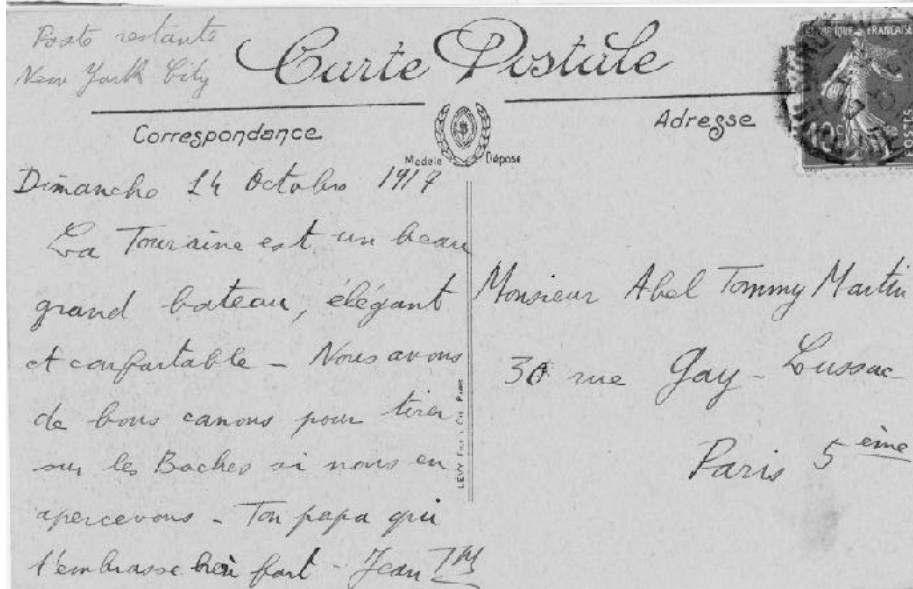 Poste restante
New York City
Carte Postale
Correspondance
Adresse
Modèle Déposé
Dimanche 14 Octobre 1917
La Touraine est un beau
grand bateau, élégant
et confortable - Nous avons
de bons canons pour tirer
sur les Boches si nous en
apercevons - Ton papa qui
t'embrasse bien fort - Jean TM
Monsieur Abel Tommy Martin
30 rue Gay-Lussac
Paris 5ème
FRANÇAISE
10c
POSTES